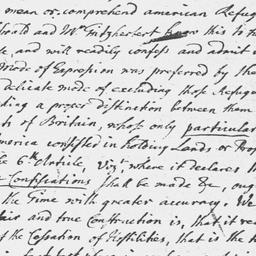 mean or comprehend american Refug
Mr Fitzherbert know this to th
e, and will readily confess and admit
mode of Expression was preferred by th
delicate mode of excluding those Refuge
ding a proper distinction between them
of Britain, whose only particular
merica consisted in holding Lands or Prop
he 6th Article, Vizt where it declares th
Confiscations, shall be made &c, oug
the Time with greater accuracy. We
fair and true Construction is, that it re
of the Cessation of Hostilities, that is the